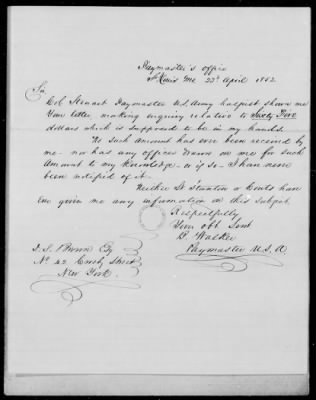 Paymaster's office
St Louis Mo. 23d April 1852.
Sir,
Col Steuart Paymaster U.S. Army has just shown me
Your letter making enquiry relative to Sixty Five
dollars which is supposed to be in my hands.
No such amount has ever been received by
me - nor has any officer drawn on me for such
Amount to my knowledge - or if so - I have never
been notified of it.
Neither Lt Stanton or Couts have
Ever given me any information on this Subject.
Respectfully
Your obt Servt
B. Walker
Paymaster U.S.A.
Brown Esq
No 42 Crosby Street
New York.